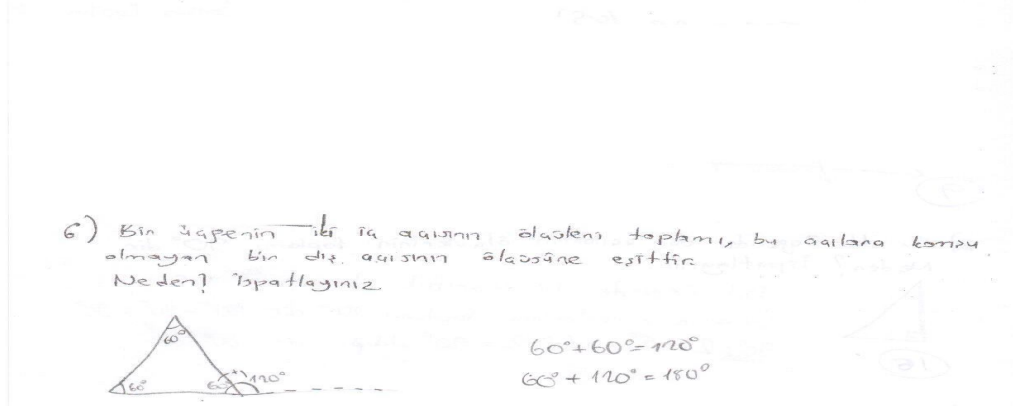 6) Bir üçgenin iki iç açısının ölçüleri toplamı, bu açılara komşu
olmayan bir dış açısının ölçüsüne eşittir.
Neden? İspatlayınız
60°
60° 60° 120°
60°+60°=120°
60°+120°=180°